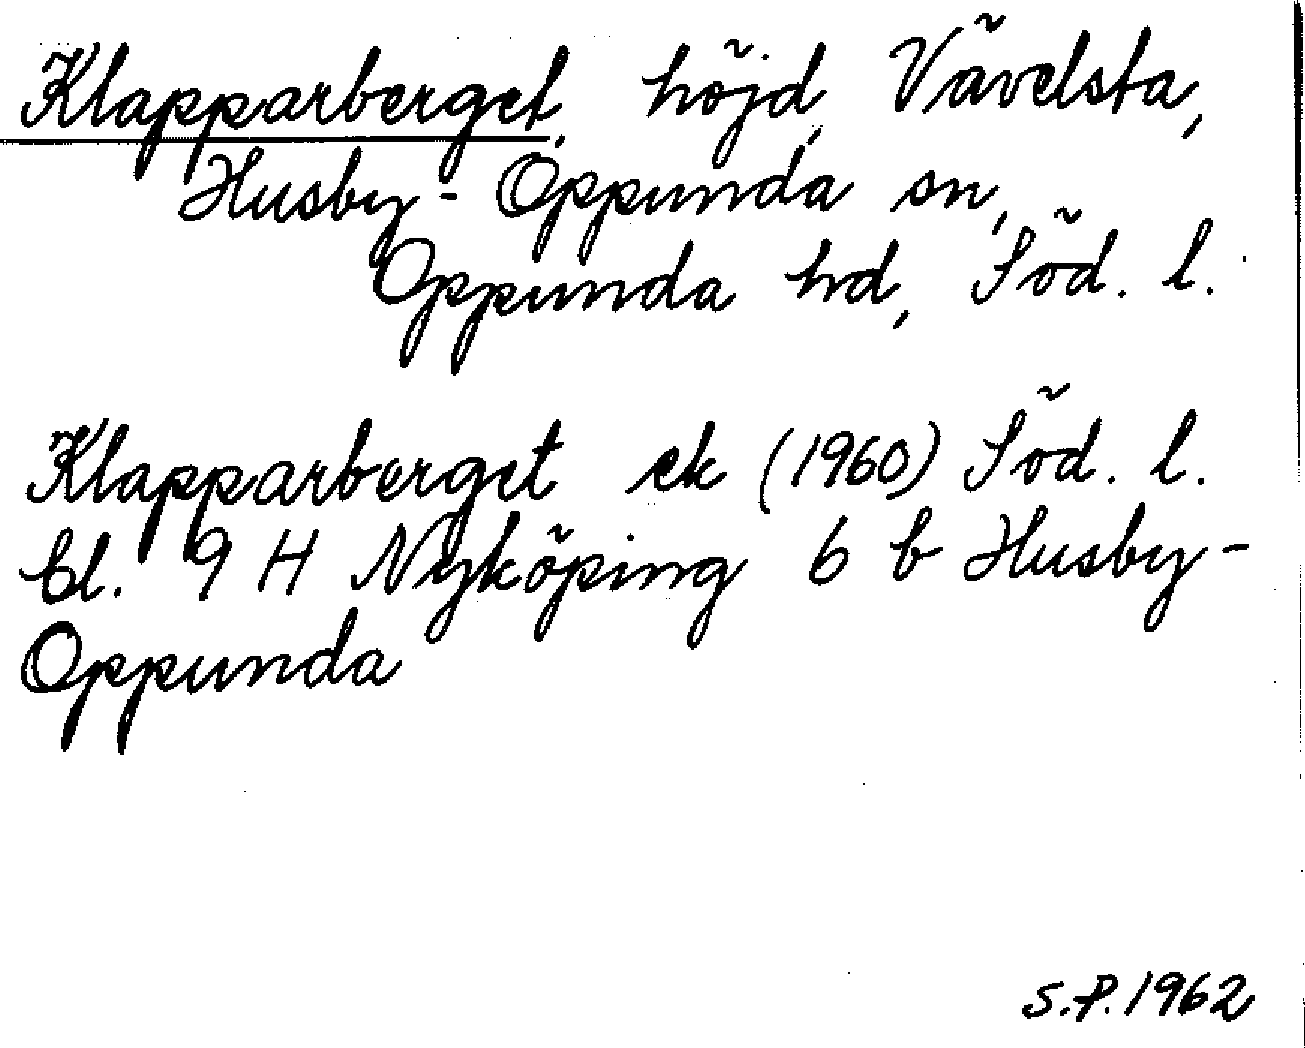 Klapparberget, höjd, Vävelsta,
Husby-Oppunda sn,
Oppunda hd, Söd. l.
Klapparberget ek (1960) Söd. l.
bl. 9 H Nyköping 6 b Husby-
Oppunda
S.P. 1962